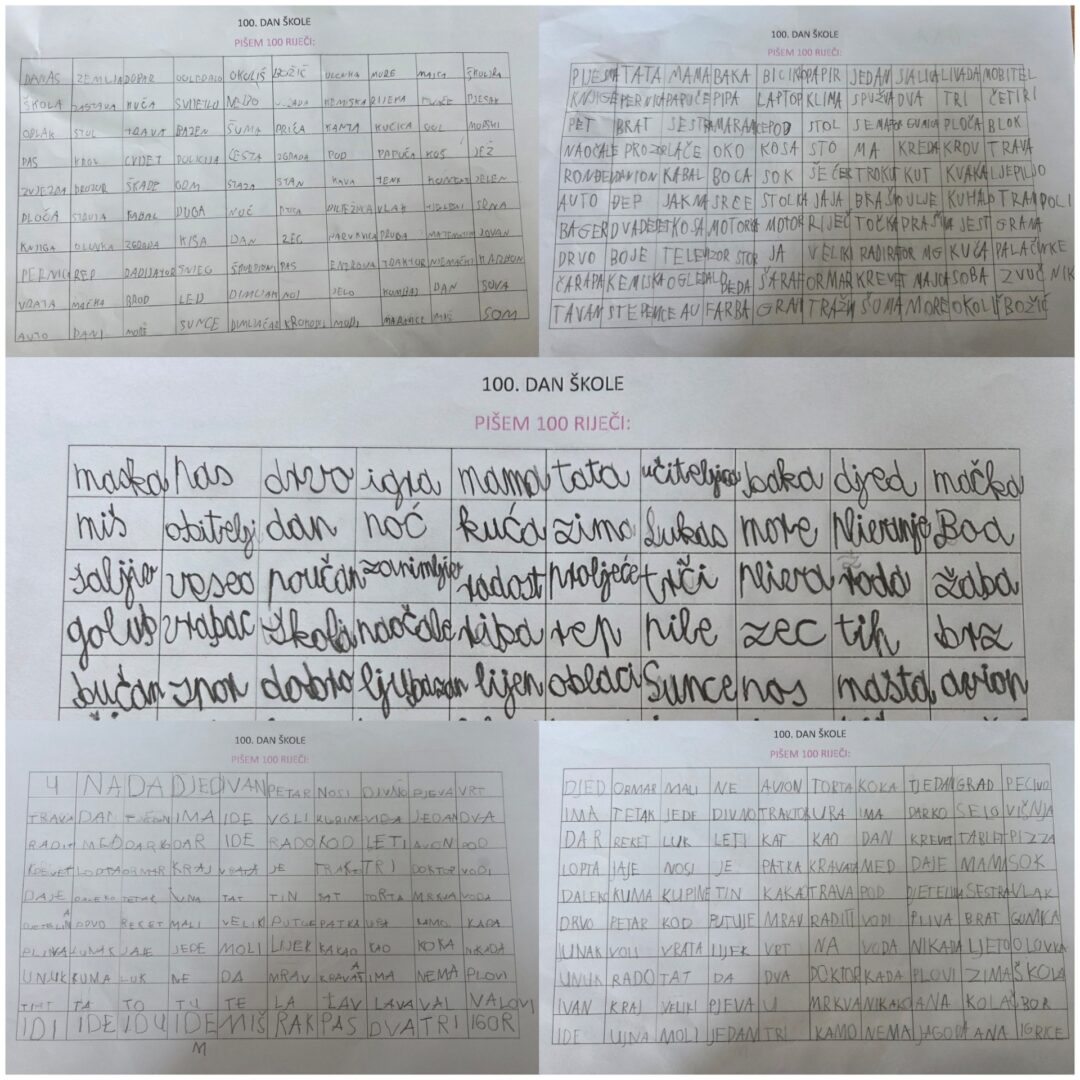 100. DAN ŠKOLE
PIŠEM 100 RIJEČI:
DANAS ZEMLJA DOBAR OGLEDALO OKOLIŠ BOŽIĆ MORE MAJCA ŠKOLICA
ŠKOLA ZASTAVA KUĆA SVIJETLO RIJEKA PIJESAK
OBLAK STOL TRAVA BAZEN ŠUMA PRIČA KANTA KUĆICA MORSKI
PAS KROV CVIJET POLICIJA CESTA ZGRADA POD PAPUČA KOŠ JEŽ
ZVIJEZDA PROZOR ŠKARE DOM STAZA STAN KAVA JELEN
PLOČA KABAL DUGA NOĆ VLAK SRNA
KNJIGA OLOVKA ZGRADA KIŠA DAN ZEC PRUGA JOVAN
PERNICA RED RADIJATOR SNIJEG PAS TRAKTOR
VRATA MAČKA BROD LED NOJ DAN SOVA
AUTO DANI SUNCE MIŠ SOM
100. DAN ŠKOLE
PIŠEM 100 RIJEČI:
PIJESMA TATA MAMA BAKA BICIKL PAPIR JEDAN SIJALICA LIVADA MOBITEL
KNJIGE PERNICA PAPUČE PIPA LAPTOP KLIMA SPUŽVA DVA TRI ČETIRI
PET BRAT SESTRA POD STOL GUMICA PLOČA BLOK
NAOČALE PROZOR OKO KOSA STO MA KREDA KROV TRAVA
AVION KABAL BOCA SOK ŠEĆER TROKUT KUT KVAKA LJEPILO
AUTO ĐEP JAKNA SRCE STOLICA JAJA BRAŠNO ULJE KUHALO TRAMPOLI
BAGER DVADESET KOSA MOTORI MOTOR RIJEČ TOČKA PRAŠINA JEST GRANA
DRVO BOJE TELEVIZOR STOR JA VELIKI RADIRATOR MG KUĆA PALAČINKE
ČARAPA KEMISKA OGLEDALO DEDA ŠARAF ORMAR KREVET MAJICA SOBA ZVUČNIK
TAVAN STEPENICE AU FARBA GRAH TRAŽIM ŠUMA MORE OKOLIŠ BOŽIĆ
100. DAN ŠKOLE
PIŠEM 100 RIJEČI:
maska pas drvo igra mama tata učiteljica baka djed mačka
miš obitelj dan noć kuća zima Lukas more Nieranje Boa
veseo poučan zanimljiv radost proljeće trči Niera roda žaba
golub vrabac škola naočale riba rep pile zec tih brz
bučan snor dobro ljubazan lijen oblaci Sunce nos mašta avion
100. DAN ŠKOLE
PIŠEM 100 RIJEČI:
4 NADA DJED VAN PETAR NOSI DIVNO PJEVA VRT
TRAVA DAN IMA IDE VOLI KUPINE VIDA JEDAN DVA
RADIO MED DARKO DAR IDE RADO KOD LETI AVION POD
KREVET LOPTA ORMAR KRAJ VRATA JE TRAK TRI DOKTOR VODI
DAJE DALEKO PETAR UNA TAT TIN TORTA MRKVA VODA
DJETELINA DRVO REKET MALI VELIK PUTUJE PATKA KAMO KADA
PLIVA JUNAK JAJE JEDE MOLI LIJEK KAKAO KAO KOKA NIKADA
UNUK KUMA LUK NE DA MRAV KRAVATA IMA NEMA PLOVI
TA TO TU TE LA LAV LAVA VAL VALOVI
IDI IDE IDU IDEM MIŠ RAK PAS DVA TRI IGOR
100. DAN ŠKOLE
PIŠEM 100 RIJEČI:
DJED ORMAR MALI NE AVION TORTA KOKA TJEDAN GRAD PECIVO
IMA TETAK JEDE DIVNO TRAKTOR URA IMA DARKO SELO VIŠNJA
DAR REKET LUK LETI KAT KAO DAN KREVET TABLET PIZZA
LOPTA JAJE NOSI JE PATKA KRAVATA MED DAJE MAMA SOK
DALEKO KUMA KUPINE TIN KAKAO TRAVA POD DJETELINA SESTRA VLAK
DRVO PETAR KOD PUTUJE MRAV RADITI VODI PLIVA BRAT GUMICA
JUNAK VOLI VRATA LIJEK VRT NA VODA NIKADA LJETO OLOVKA
UNUK RADO TAT DA DVA DOKTOR KADA PLOVI ZIMA ŠKOLA
IVAN KRAJ VELIKI PJEVA U MRKVA NIKAKO ANA KOLAČ BOR
IDE UJNA MOLI JEDAN TRI KAMO NEMA JAGODA ANA IGRICE